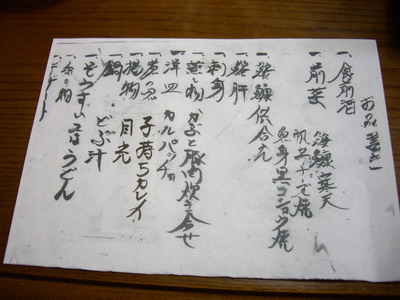 お品書き
一、食前酒
一、前菜
鮟鱇寒天
帆立チーズ焼
魚身黒コショウ焼
一、鮟鱇供合え
一、鮟肝
一、刺身
一、蒸し物 かぶと豚肉炊き合せ
一、洋皿 カルパッチョ
一、煮魚 子持ちカレイ
一、揚物 目光
一、鍋 どぶ汁
一、ぞうすい又はうどん
一、香の物
一、デザート